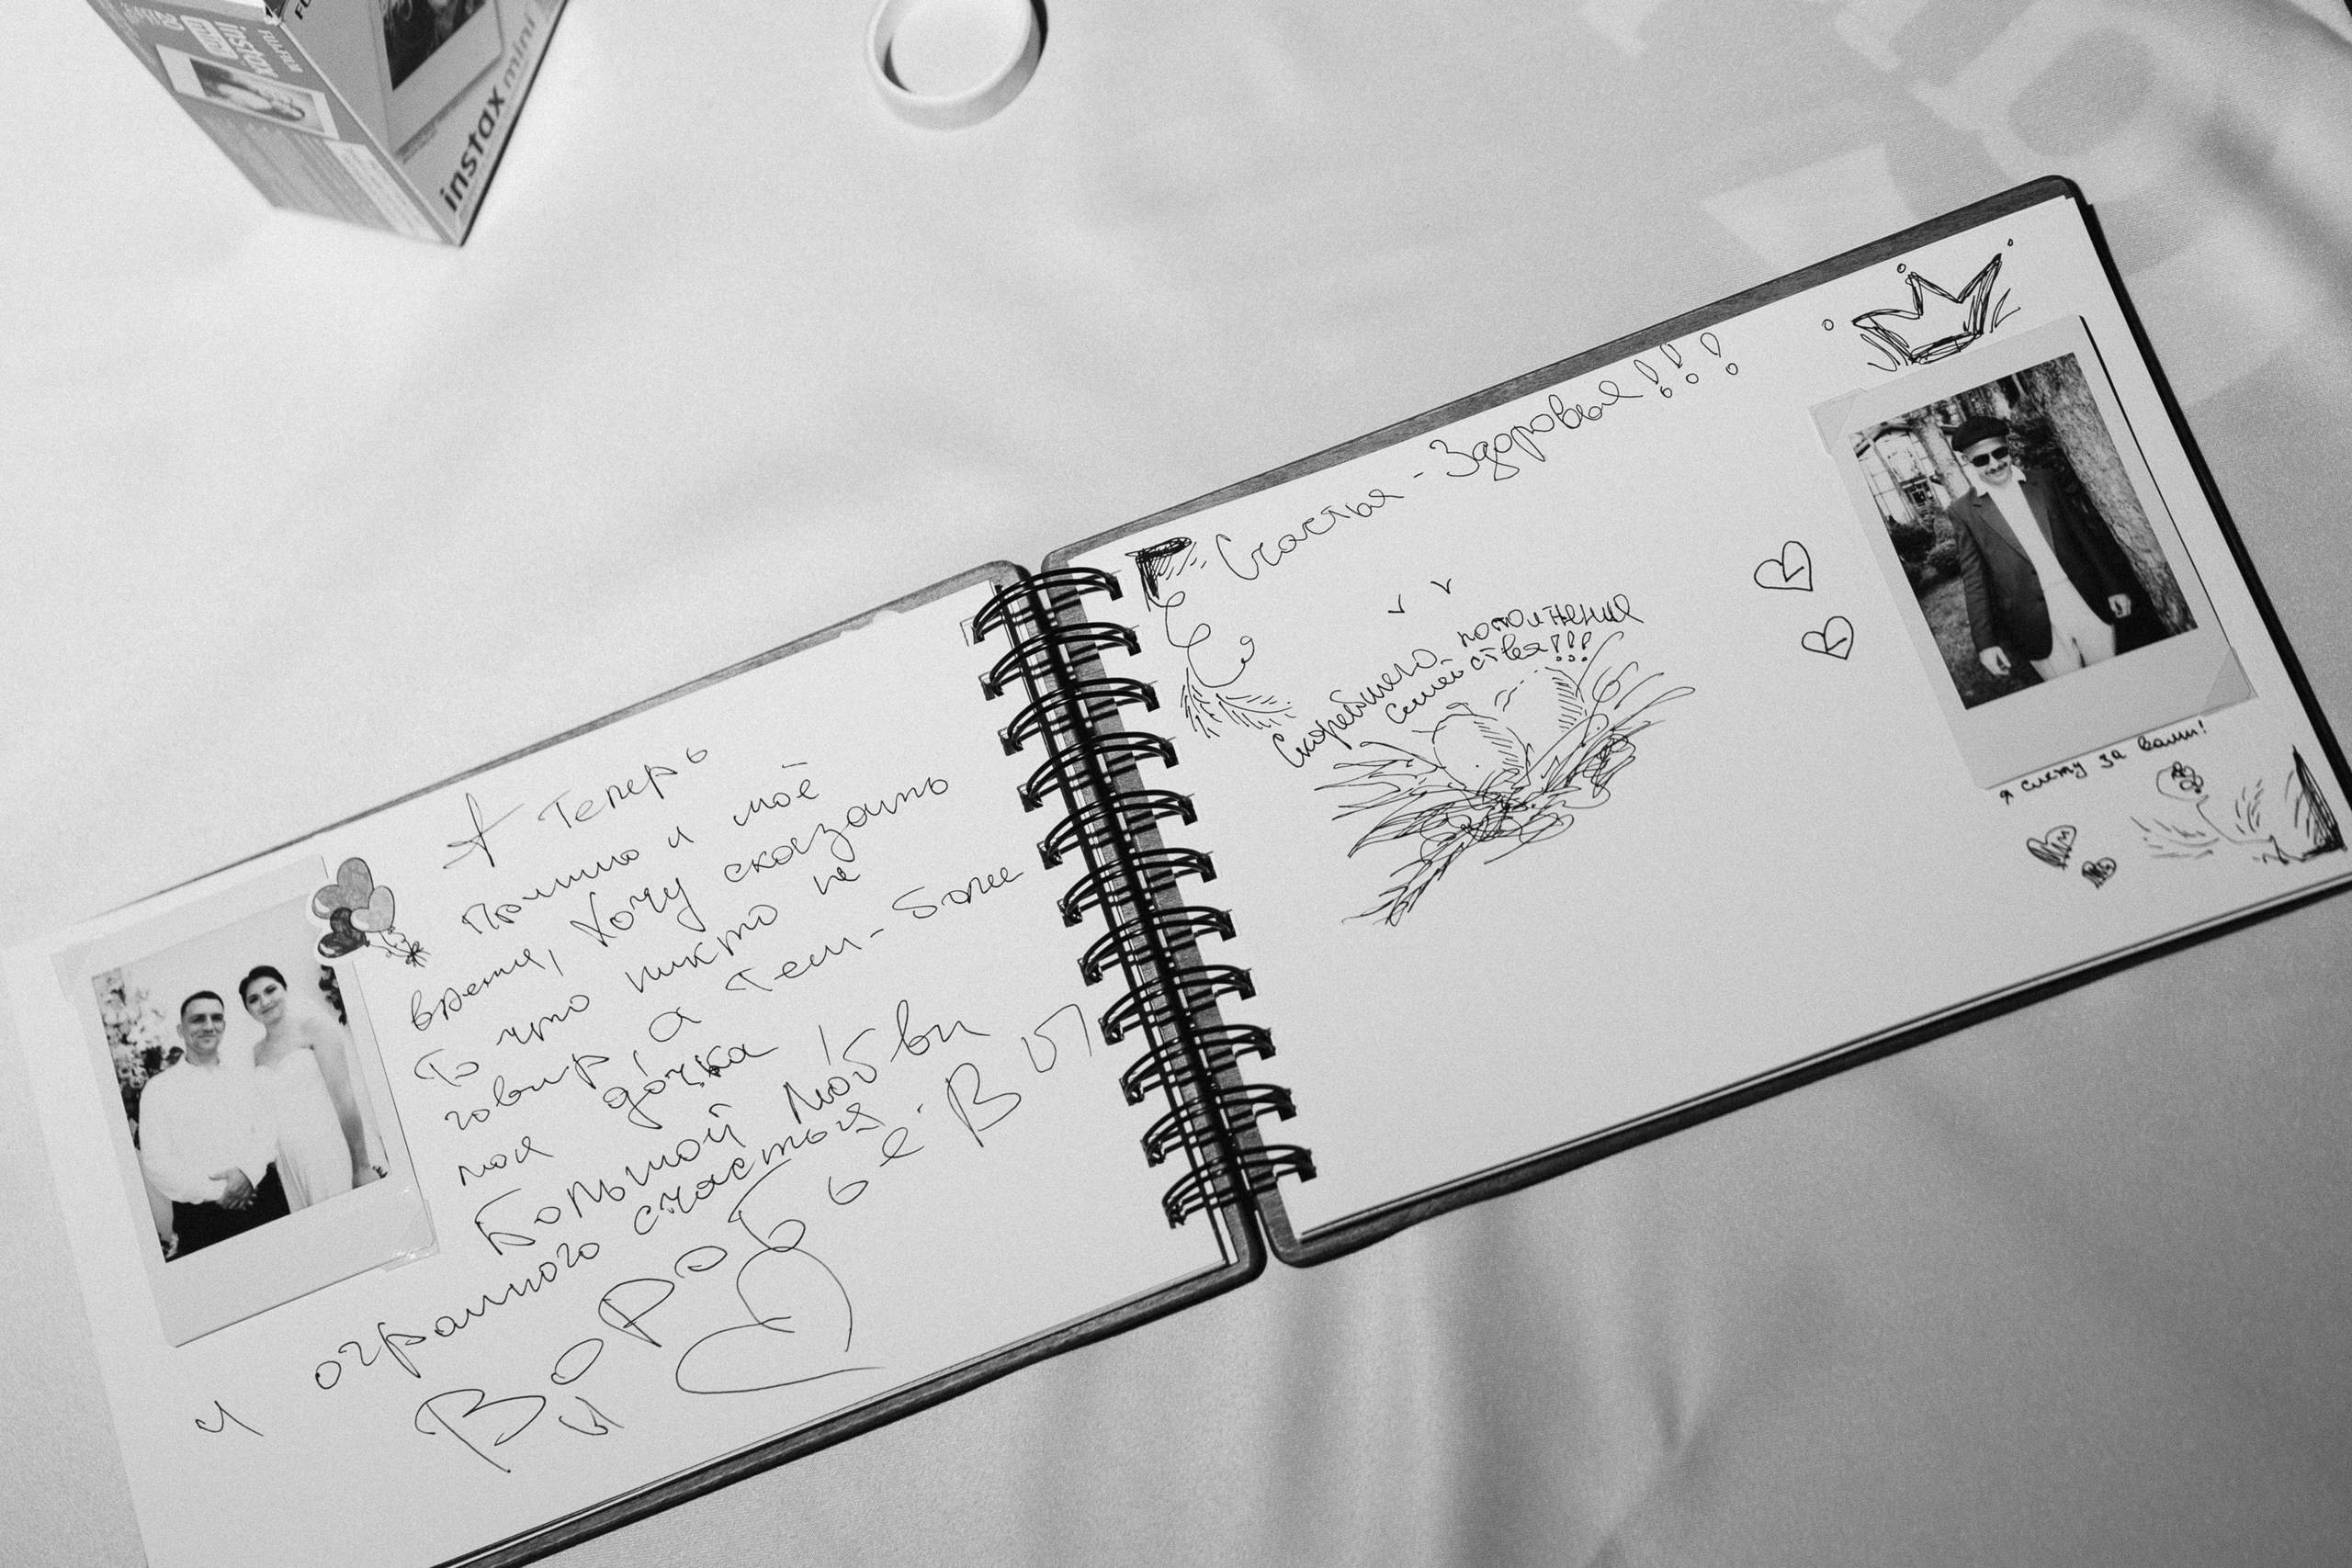 instax mini
instax
FUJIFILM
А теперь
Пришло и моё
время, Хочу сказать
То что никто не
говир, а Тем-более
моя дочка!
Большой Любви
и огромного счастья
Воробьё Вы
Счастья - Здоровья!!!
Скорейшего пополнения
семейства!!!
я слежу за вами!